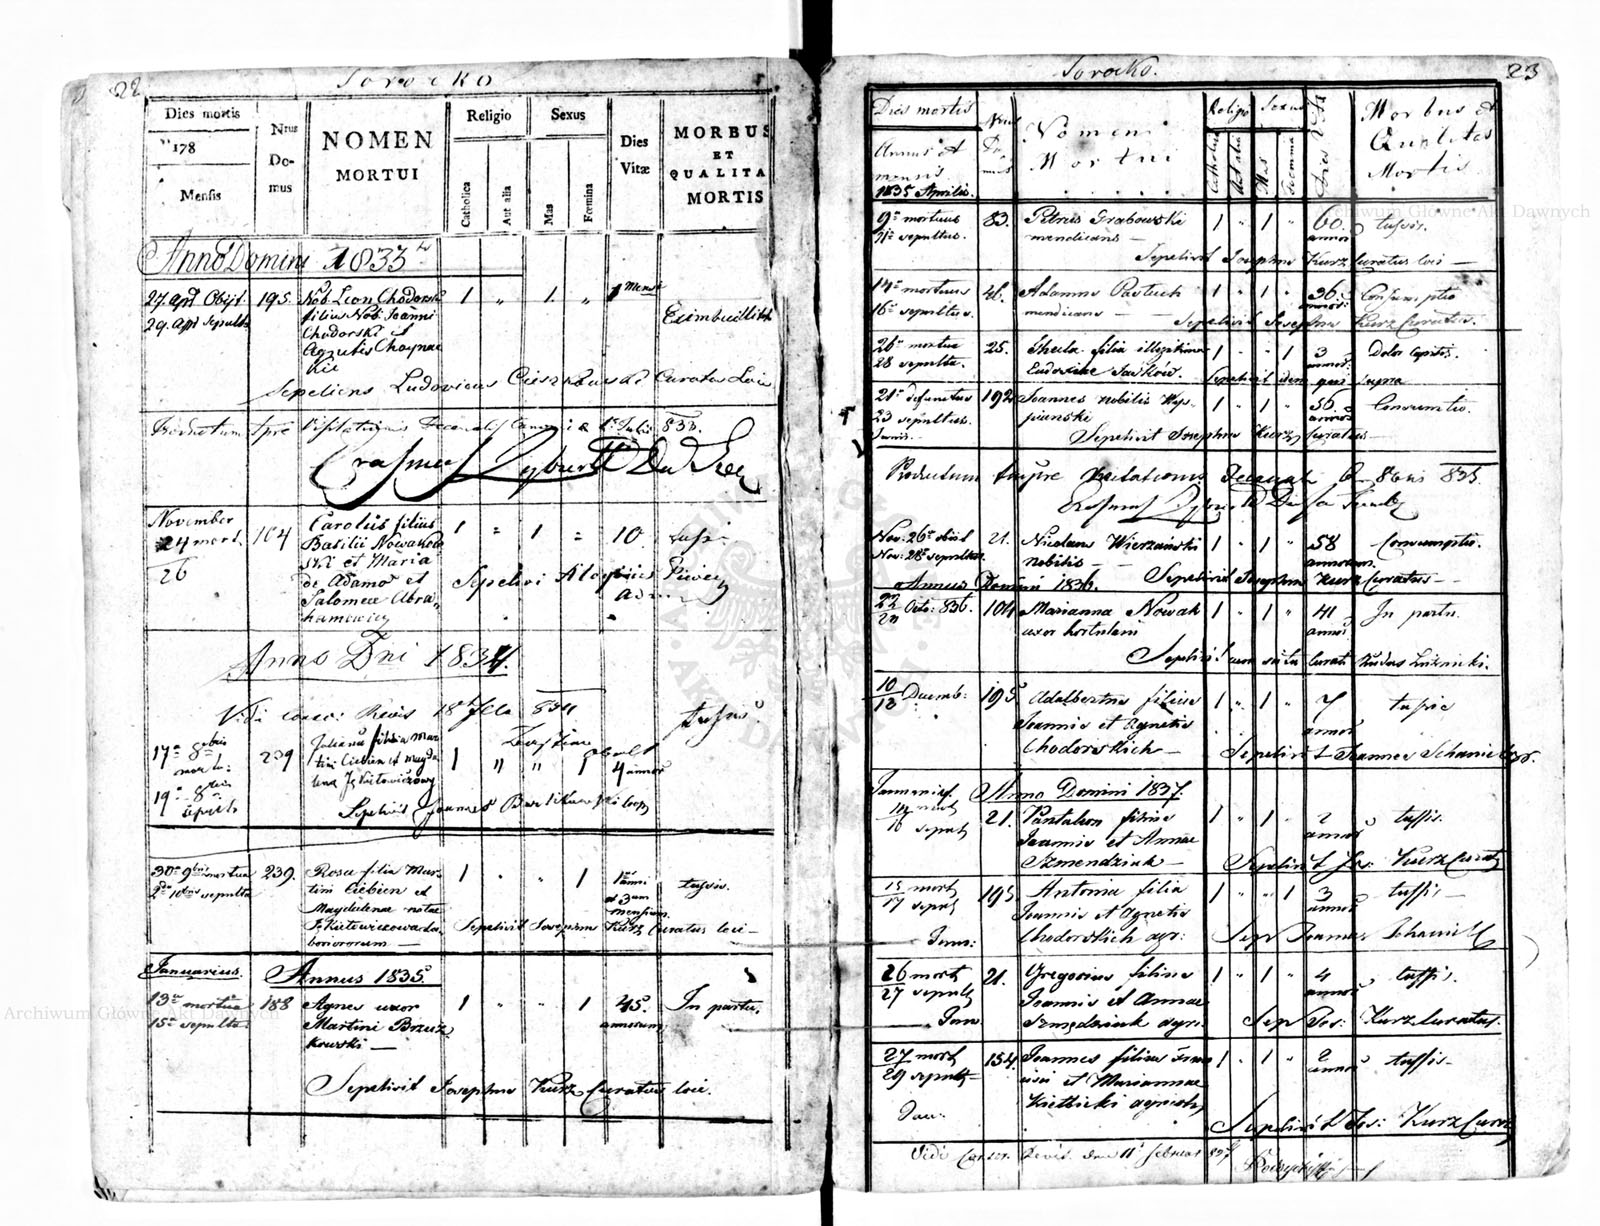 22
Sorocko
Dies mortis
178
Mensis
Nrus
Do-
mus
NOMEN
MORTUI
Religio
Catholica
Aut alia
Sexus
Mas
Fœmina
Dies
Vitæ
MORBUS
ET
QUALITA
MORTIS
Anno Domini 1833
27. Apr Obijt
29. Apr sepult
195.
Nob Leon Chodorski
filius Nob: Joanni
Chodorski et
Agnetis Choynac
kie
1 " 1. " 1 Mens
Sepeliens Ludovicus Curatus Loci
Productum 833.
November
24 mort.
26
104
Carolus filius
Basilii Nowakow
ski et Maria
de Adamo et
Salomeae Abra-
hamowicz
1 = 1 = 10
Sepelivi Aloysius
Anno Dni 1834.
Vidi
17a 8bris
mort:
19a 8bris
sepult
239
Juliana filia Mar
tini Cieben et Magda
lena
1 " " 1 4 annor
Sepelivit Joannes coop
30a 9bris mortua
2da 10bris sepulta
239.
Rosa filia Mar-
tini Cieben et
Magdalenae natae
boriorum
1 " " 1 1 anni
et 3 um
mensium
tussis.
Sepelivit Josephus Kurz Curatus loci
Januarius. Annus 1835.
13a mortua
15a sepulta
188
Agnes uxor
Martini Brzuz
kowski
1 " " 1 45.
annorum
In partu.
Sepelivit Josephus Kurz Curatus loci.
Sorocko.
23
Dies mortis
Annus et
mensis
1835 Aprilis.
Nrus
Do
mus
Nomen
Mortui
Religio
Catholica
Aut alia
Sexus
Mas
Foemina
Dies Vitae
Morbus et
Qualitas
Mortis
9a mortuus
11a sepultus.
83.
Petrus Grabowski
mendicans
1 " 1 " 60.
annor
tussis.
Sepelivit Josephus Kurz Curatus loci
14a mortuus
16a sepultus.
46.
Adamus Pastuch
mendicans
1 " 1 " 36.
annor:
Consumptio
Sepelivit Josephus Kurz Curatus.
26a mortua
28 sepulta.
25.
Thecla filia illegitima
Eudociae
1 " " 1 3
annor:
Dolor Capitis.
Sepelivit idem qui supra
21a defunctus
23 sepultus.
192
Joannes nobilis Wys-
pianski
1 " 1 " 56
annor
Consumtio.
Sepelivit Josephus Kurz Curatus
Productum tempre visitationis Decanal 835
Nov: 26a obiit
Nov: 28a sepultus
21.
Nicolaus Wierzanski
nobilis
1 " 1 " 58
annorum
Consumptio.
Sepelivit Josephus Kurz Curatus
Annus Domini 1836.
22 Octo: 836.
104
Marianna Nowak
uxor hortulani
1 " 1 " 41
annor
In partu.
10
12 Decemb:
195
Adalbertus filius
Joannis et Agnetis
Chodorskich
1 " 1 " 7
annor
tussis
Sepelivit Joannes
Januarius. Anno Domini 1837.
14 mort
16 sepult
21.
Pantaleon filius
Joannis et Annae
Szmendziuk
1 " 1 " 2
annor
tussis.
Sepelivit Jos: Kurz Curat
15 mort
17 sepult
Janu:
195
Antonia filia
Joannis et Agnetis
Chodorskich agr:
1 " " 1 3
annor
tussis
Sep Joannes
26 mort
27 sepult
Janu.
21.
Gregorius filius
Joannis et Annae
Szmędziuk agri:
1 " 1 " 4
annor
tussis.
Sep Jos: Kurz Curatus.
27 mort
29 sepult
Jan:
154.
Joannes filius
et Mariannae
1 " 1 " 2
annor
tussis
Sepelivit Jos: Kurz Curat
Archiwum Główne Akt Dawnych
Archiwum Główne Akt Dawnych